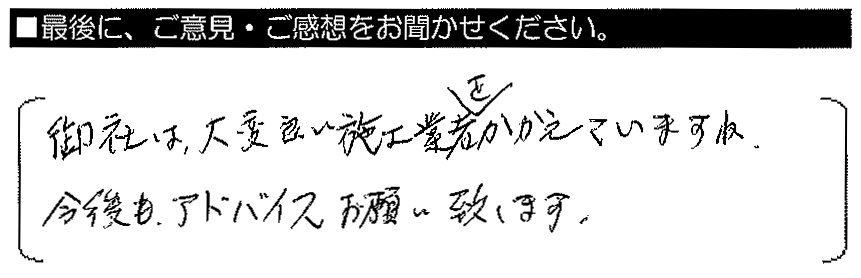 ■最後に、ご意見・ご感想をお聞かせください。
御社は、大変良い施工業者をかかえていますね.
今後も、アドバイスお願い致します。